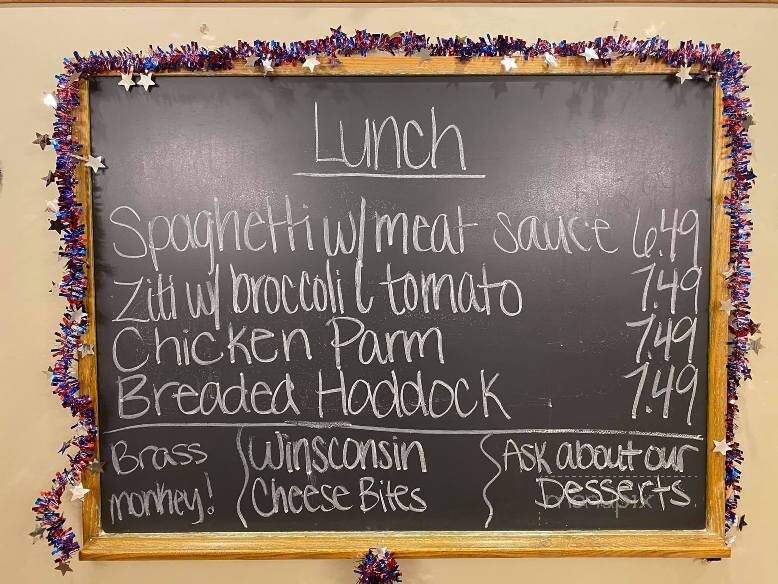 Lunch
Spaghetti w/ meat sauce 6.49
Ziti w/ broccoli & tomato 7.49
Chicken Parm 7.49
Breaded Haddock 7.49
Brass monkey!
Winsconsin Cheese Bites
Ask about our Desserts